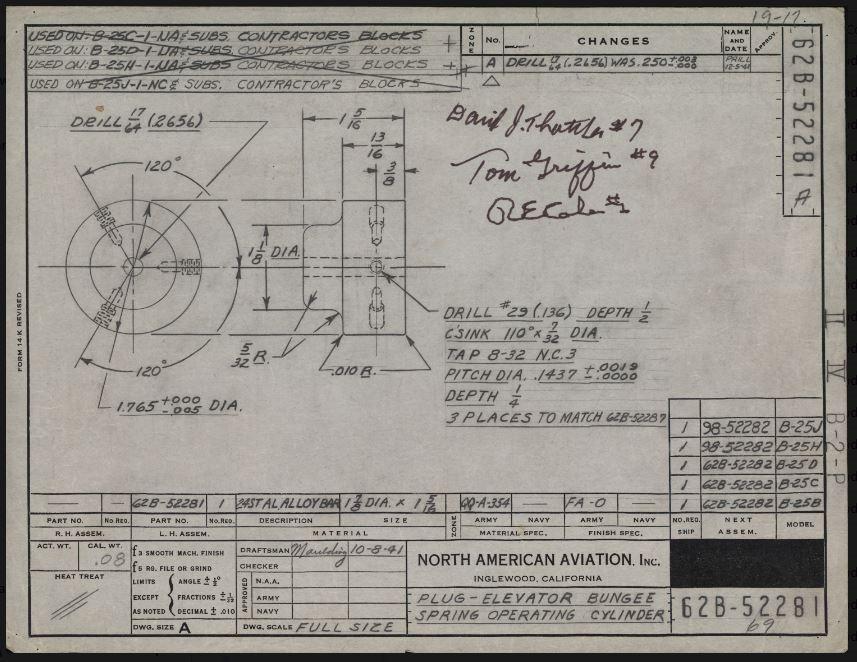 19-17
USED ON: B-25C-1-NA & SUBS. CONTRACTORS BLOCKS
USED ON: B-25D-1-NA & SUBS. CONTRACTORS BLOCKS
USED ON: B-25H-1-NA & SUBS CONTRACTORS BLOCKS
USED ON B-25J-1-NC & SUBS. CONTRACTOR'S BLOCKS
ZONE No. CHANGES NAME AND DATE APPROV.
A DRILL 17/64 (.2656) WAS .250 +.003 -.000
12-5-41
62B-52281 A
DRILL 17/64 (.2656)
120°
120°
1 5/16
13/16
3/8
1 1/8 DIA.
5/32 R.
.010 R.
1.765 +.000 -.005 DIA.
David J. #7
Tom Griffin #9
RECole #2
DRILL #29 (.136) DEPTH 1/2
C'SINK 110° x 7/32 DIA.
TAP 8-32 N.C.3
PITCH DIA. .1437 +.0019 -.0000
DEPTH 1/4
3 PLACES TO MATCH 62B-52287
FORM 14-K REVISED
II IV B-2-P
1 98-52282 B-25J
1 98-52282 B-25H
1 62B-52282 B-25D
1 62B-52282 B-25C
1 62B-52282 B-25B
— — 62B-52281 1 24ST AL ALLOY BAR 1 7/8 DIA. x 1 5/16 QQ-A-354 — FA-O —
PART NO. No. REQ. PART NO. No. REQ. DESCRIPTION SIZE ZONE ARMY NAVY ARMY NAVY NO. REQ. SHIP NEXT ASSEM. MODEL
R.H. ASSEM. L.H. ASSEM. MATERIAL MATERIAL SPEC. FINISH SPEC.
ACT. WT. CAL. WT. .08
HEAT TREAT
f3 SMOOTH MACH. FINISH
f5 RG. FILE OR GRIND
LIMITS EXCEPT AS NOTED
ANGLE ± ½°
FRACTIONS ± 1/32
DECIMAL ± .010
DWG. SIZE A
DRAFTSMAN Maulding 10-8-41
CHECKER
APPROVED
N.A.A.
ARMY
NAVY
DWG. SCALE FULL SIZE
NORTH AMERICAN AVIATION, INC.
INGLEWOOD, CALIFORNIA
PLUG-ELEVATOR BUNGEE
SPRING OPERATING CYLINDER
62B-52281
69